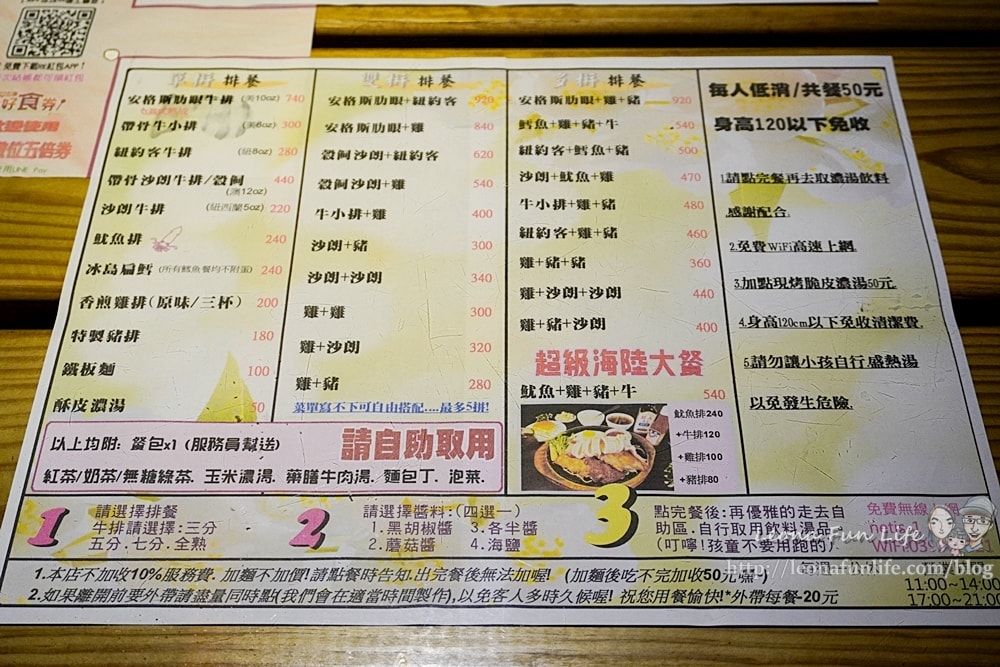 免費下載 紅包APP!
好食券!
數位五倍券
單拼 排餐
安格斯肋眼牛排 (美10oz) 740
帶骨牛小排 (美8oz) 300
紐約客牛排 (紐8oz) 280
帶骨沙朗牛排/穀飼 (澳12oz) 440
沙朗牛排 (紐西蘭5oz) 220
魷魚排 240
冰島扁鱈 (所有鱈魚餐均不附蛋) 240
香煎雞排(原味/三杯) 200
特製豬排 180
鐵板麵 100
酥皮濃湯 50
雙拼 排餐
安格斯肋眼+紐約客 920
安格斯肋眼+雞 840
穀飼沙朗+紐約客 620
穀飼沙朗+雞 540
牛小排+雞 400
沙朗+豬 300
沙朗+沙朗 340
雞+雞 300
雞+沙朗 320
雞+豬 280
菜單寫不下可自由搭配....最多5拼!
多拼 排餐
安格斯肋眼+雞+豬 920
鱈魚+雞+豬+牛 540
紐約客+鱈魚+豬 500
沙朗+魷魚+雞 470
牛小排+雞+豬 480
紐約客+雞+豬 460
雞+豬+豬 360
雞+沙朗+沙朗 440
雞+豬+沙朗 400
超級海陸大餐
魷魚+雞+豬+牛 540
魷魚排240
+牛排120
+雞排100
+豬排80
每人低消/共餐50元
身高120以下免收
1.請點完餐再去取濃湯飲料
感謝配合.
2.免費WiFi高速上網.
3.加點現烤脆皮濃湯50元.
4.身高120cm以下免收清潔費.
5.請勿讓小孩自行盛熱湯
以免發生危險.
以上均附: 餐包x1 (服務員幫送)
請自助取用
紅茶/奶茶/無糖綠茶. 玉米濃湯. 藥膳牛肉湯. 麵包丁. 泡菜.
1
請選擇排餐
牛排請選擇:三分
五分.七分.全熟
2
請選擇醬料:(四選一)
1.黑胡椒醬 3.各半醬
2.蘑菇醬 4.海鹽
3
點完餐後:再優雅的走去自
助區.自行取用飲料湯品.
(叮嚀!孩童不要用跑的)
免費無線上網
1.本店不加收10%服務費. 加麵不加價!請點餐時告知.出完餐後無法加喔! (加麵後吃不完加收50元嘿~)
2.如果離開前要外帶請盡量同時點(我們會在適當時間製作),以免客人多時久候喔! 祝您用餐愉快!*外帶每餐-20元
11:00~14:00
17:00~21:00
Leona Fun Life
http://leonafunlife.com/blog